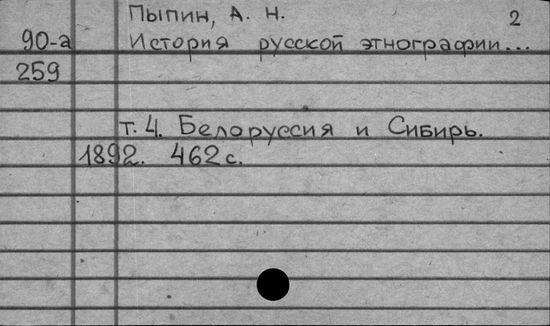 Пыпин, А. Н. 2
90-а История русской этнографии...
259
т. 4. Белоруссия и Сибирь.
1892. 462 с.